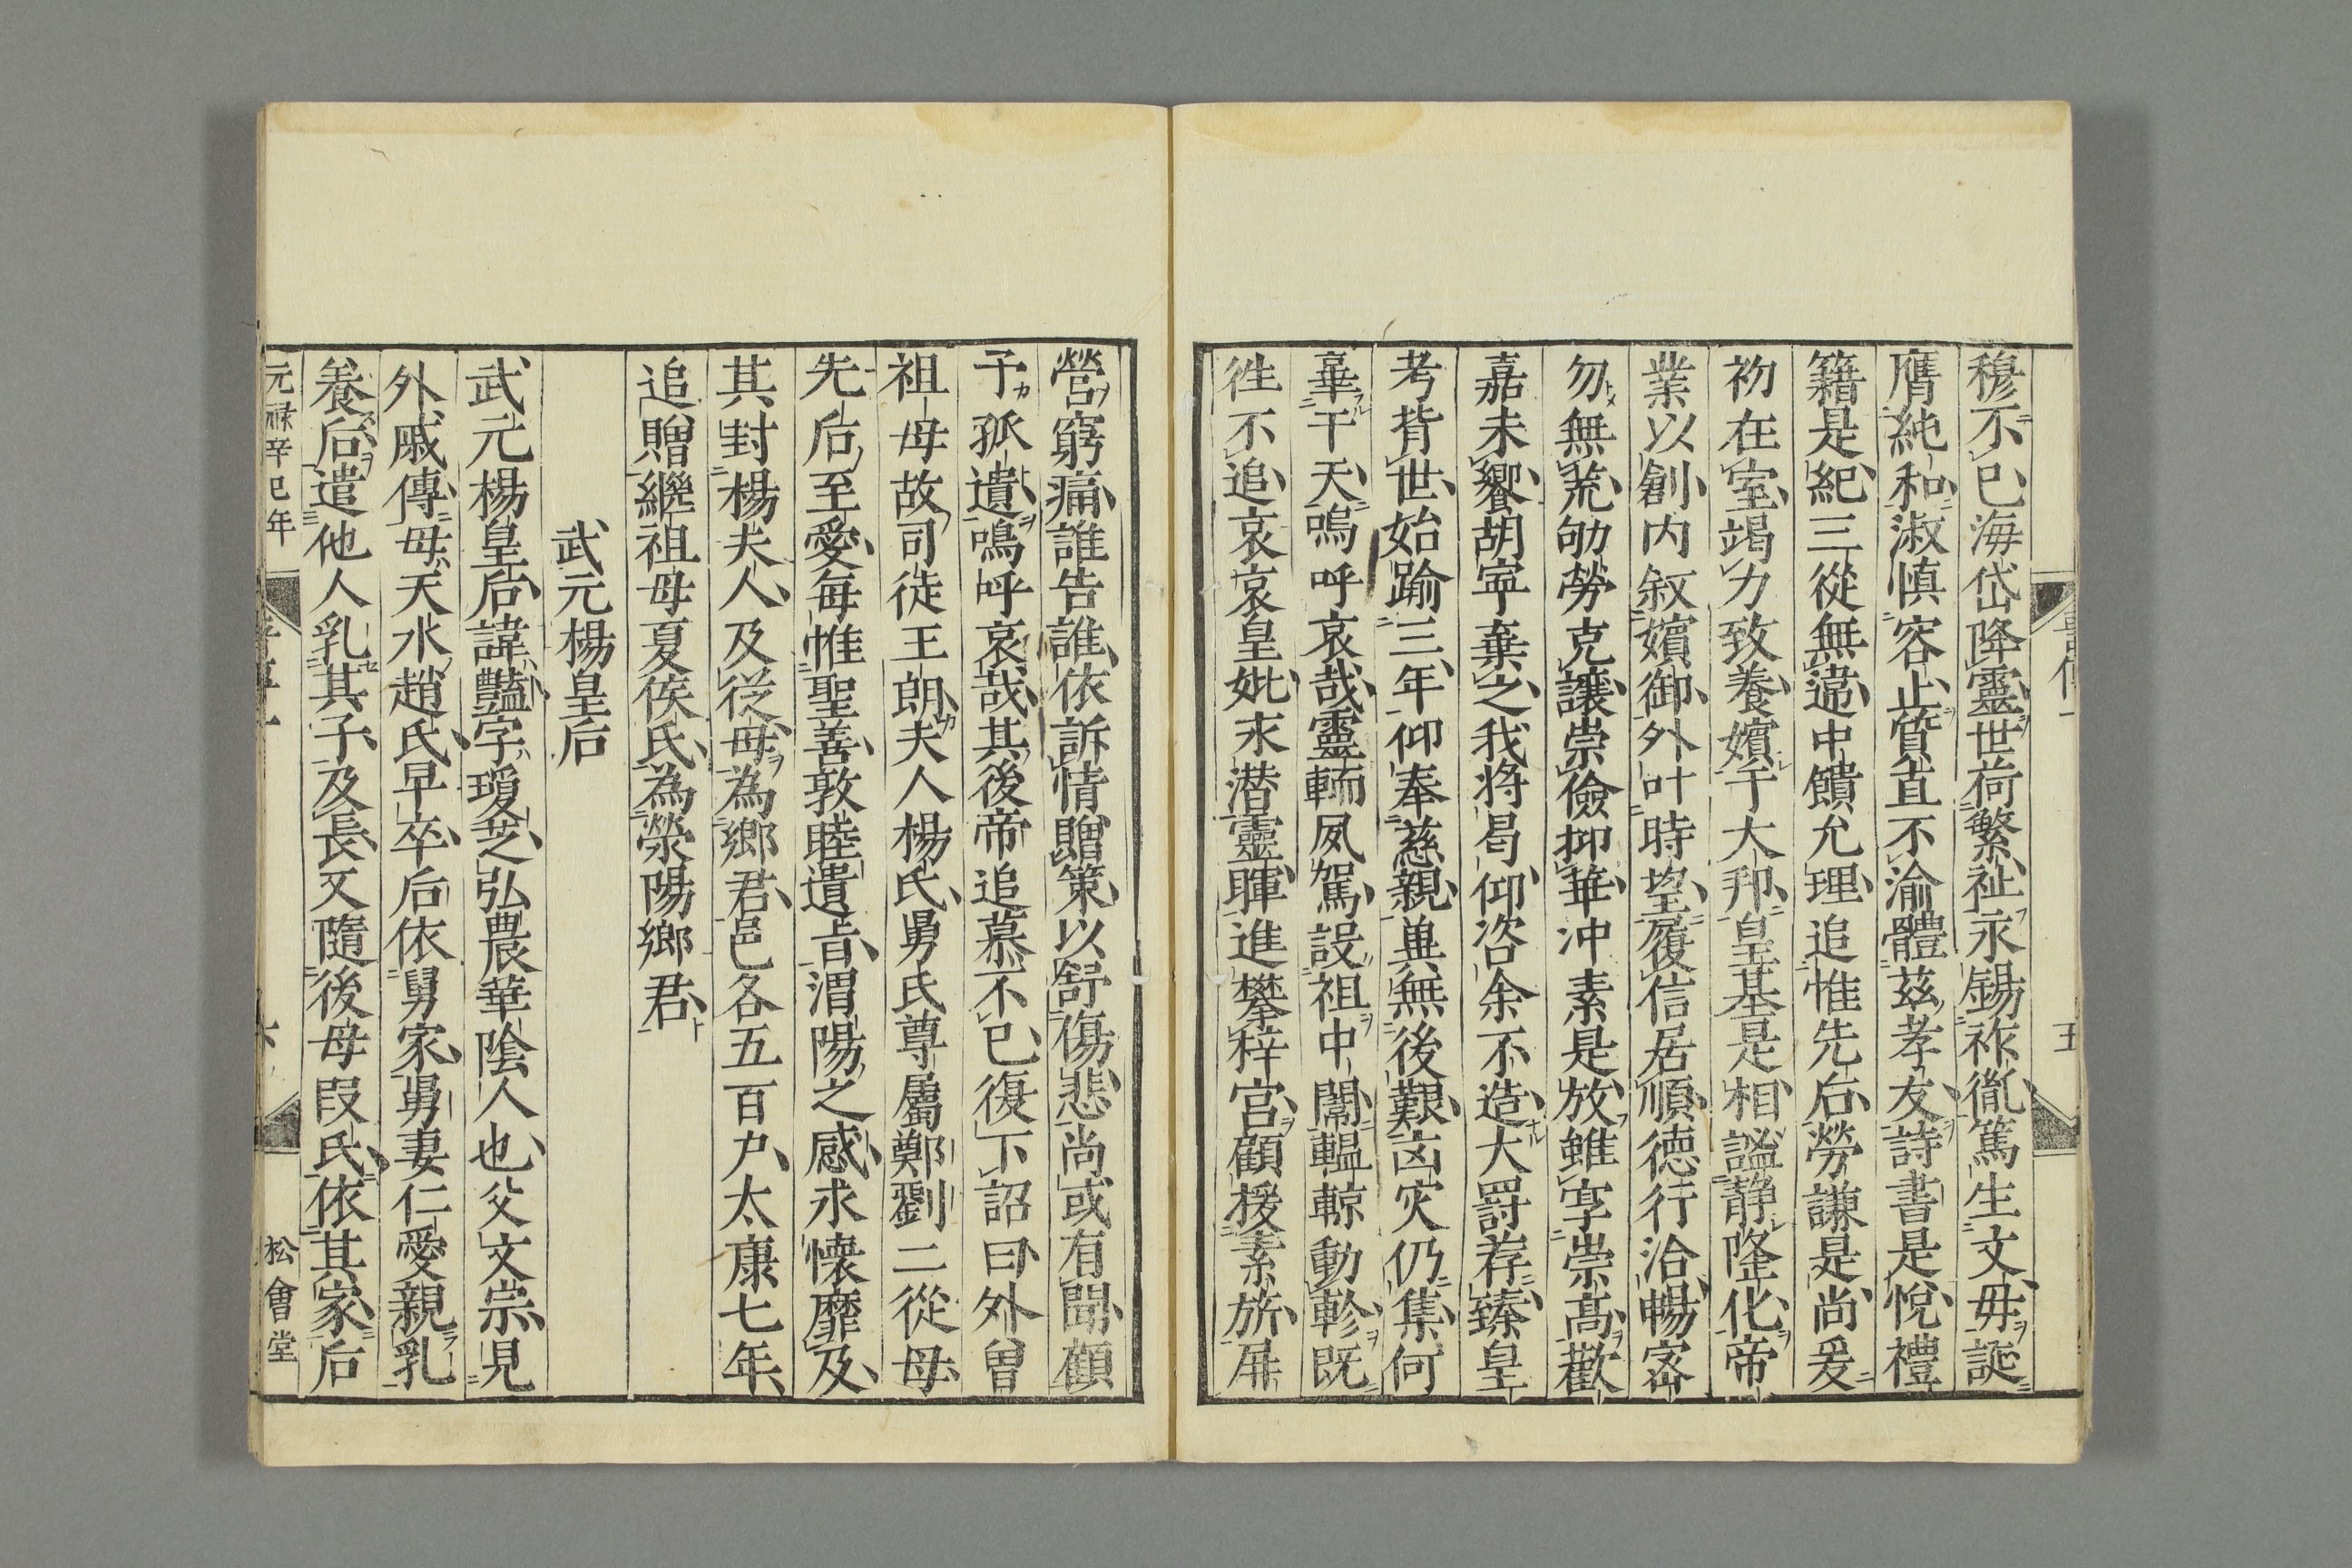 穆不已海岱降靈世荷繁祉永錫祚胤篤生文毋誕
膺純和淑慎容止質直不渝體茲孝友詩書是悅禮
籍是紀三從無違中饋允理追惟先后勞謙是尚爰
初在室竭力致養嬪于大邦皇基是相謐靜隆化帝
業以創内叙嬪御外叶時望履信居順德行洽暢密
勿無荒劬勞克讓崇儉抑華冲素是放雖享崇高歡
嘉未饗胡寧棄之我將曷仰咨余不造大罰荐臻皇
考背世始踰三年仰奉慈親兾無後艱凶灾仍集何
辜于天嗚呼哀哉靈輀夙駕設祖中闈輼輬動軫既
徃不追哀哀皇妣永潛靈暉進攀梓宮顧援素旂屏
營窮痛誰告誰依訴情贈策以舒傷悲尚或有聞顧
予孤遺嗚呼哀哉其後帝追慕不已復下詔曰外曾
祖母故司徒王朗夫人楊氏舅氏尊屬鄭劉二從母
先后至愛每惟聖善敦睦遺旨渭陽之感永懷靡及
其封楊夫人及從母為鄉君邑各五百户太康七年
追贈繼祖母夏侯氏為滎陽鄉君
武元楊皇后
武元楊皇后諱豔字瓊芝弘農華陰人也父文宗見
外戚傳母天水趙氏早卒后依舅家舅妻仁愛親乳
養后遣他人乳其子及長又隨後母叚氏依其家后
元禄辛巳年
松會堂